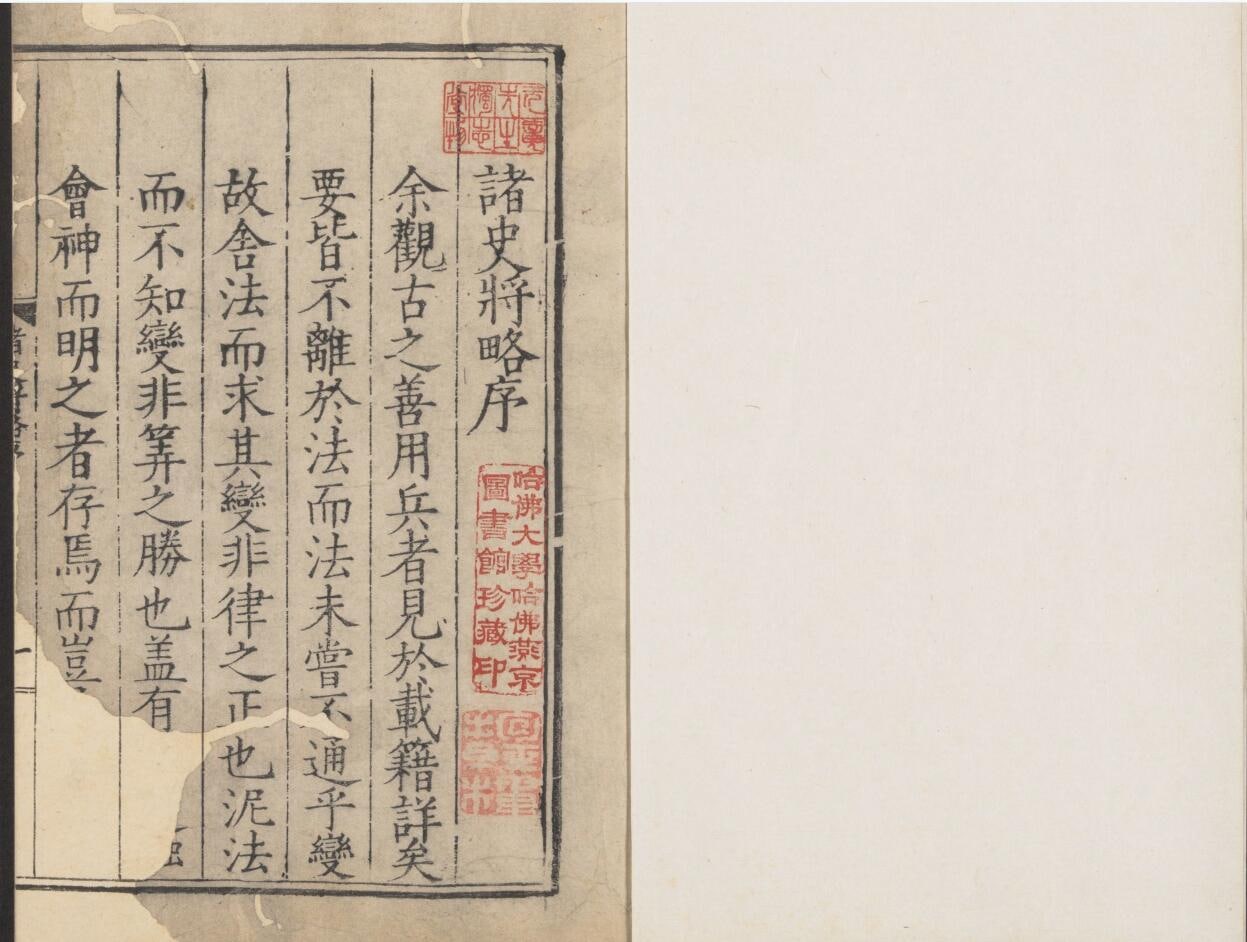 諸史將略序
哈佛大學哈佛燕京
圖書館珍藏印
余觀古之善用兵者見於載籍詳矣
要皆不離於法而法未嘗不通乎變
故舍法而求其變非律之正也泥法
而不知變非筭之勝也盖有
會神而明之者存焉而豈